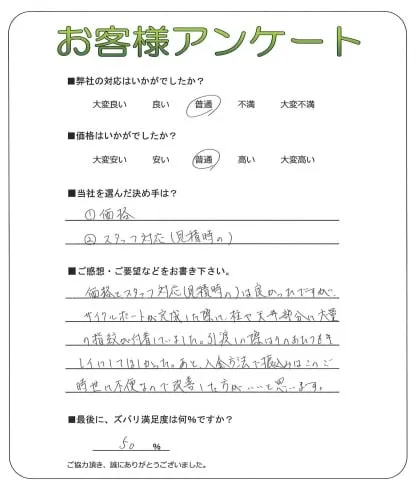 お客様アンケート
■弊社の対応はいかがでしたか？
大変良い 良い 普通 不満 大変不満
■価格はいかがでしたか？
大変安い 安い 普通 高い 大変高い
■当社を選んだ決め手は？
①価格
②スタッフ対応(見積時の)
■ご感想・ご要望などをお書き下さい。
価格とスタッフ対応(見積時の)は良かったですが、
サイクルポートが完成した際に、柱や天井部分に大量
の指紋が付着していました。引渡しの際は
キレイにしてほしかった。あと、入金方法で振込みはこのご
時世に不便なので改善した方がいいと思います。
■最後に、ズバリ満足度は何％ですか？
50 ％
ご協力頂き、誠にありがとうございました。